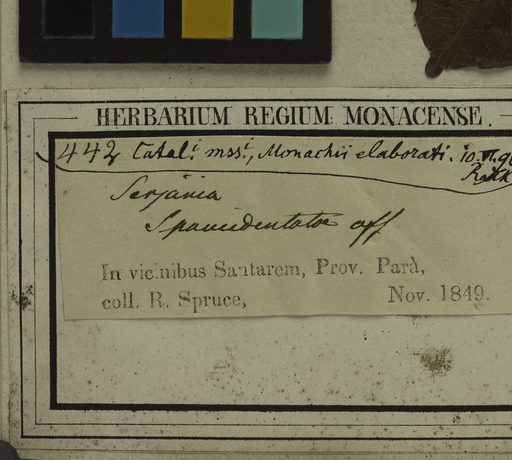 HERBARIUM REGIUM MONACENSE.
442 Catal.i mss.i, Monachii elaborati. 10. VI. 9
Serjania
S. paucidentatae aff
In vicinibus Santarem, Prov. Parà,
coll. R. Spruce, Nov. 1849.